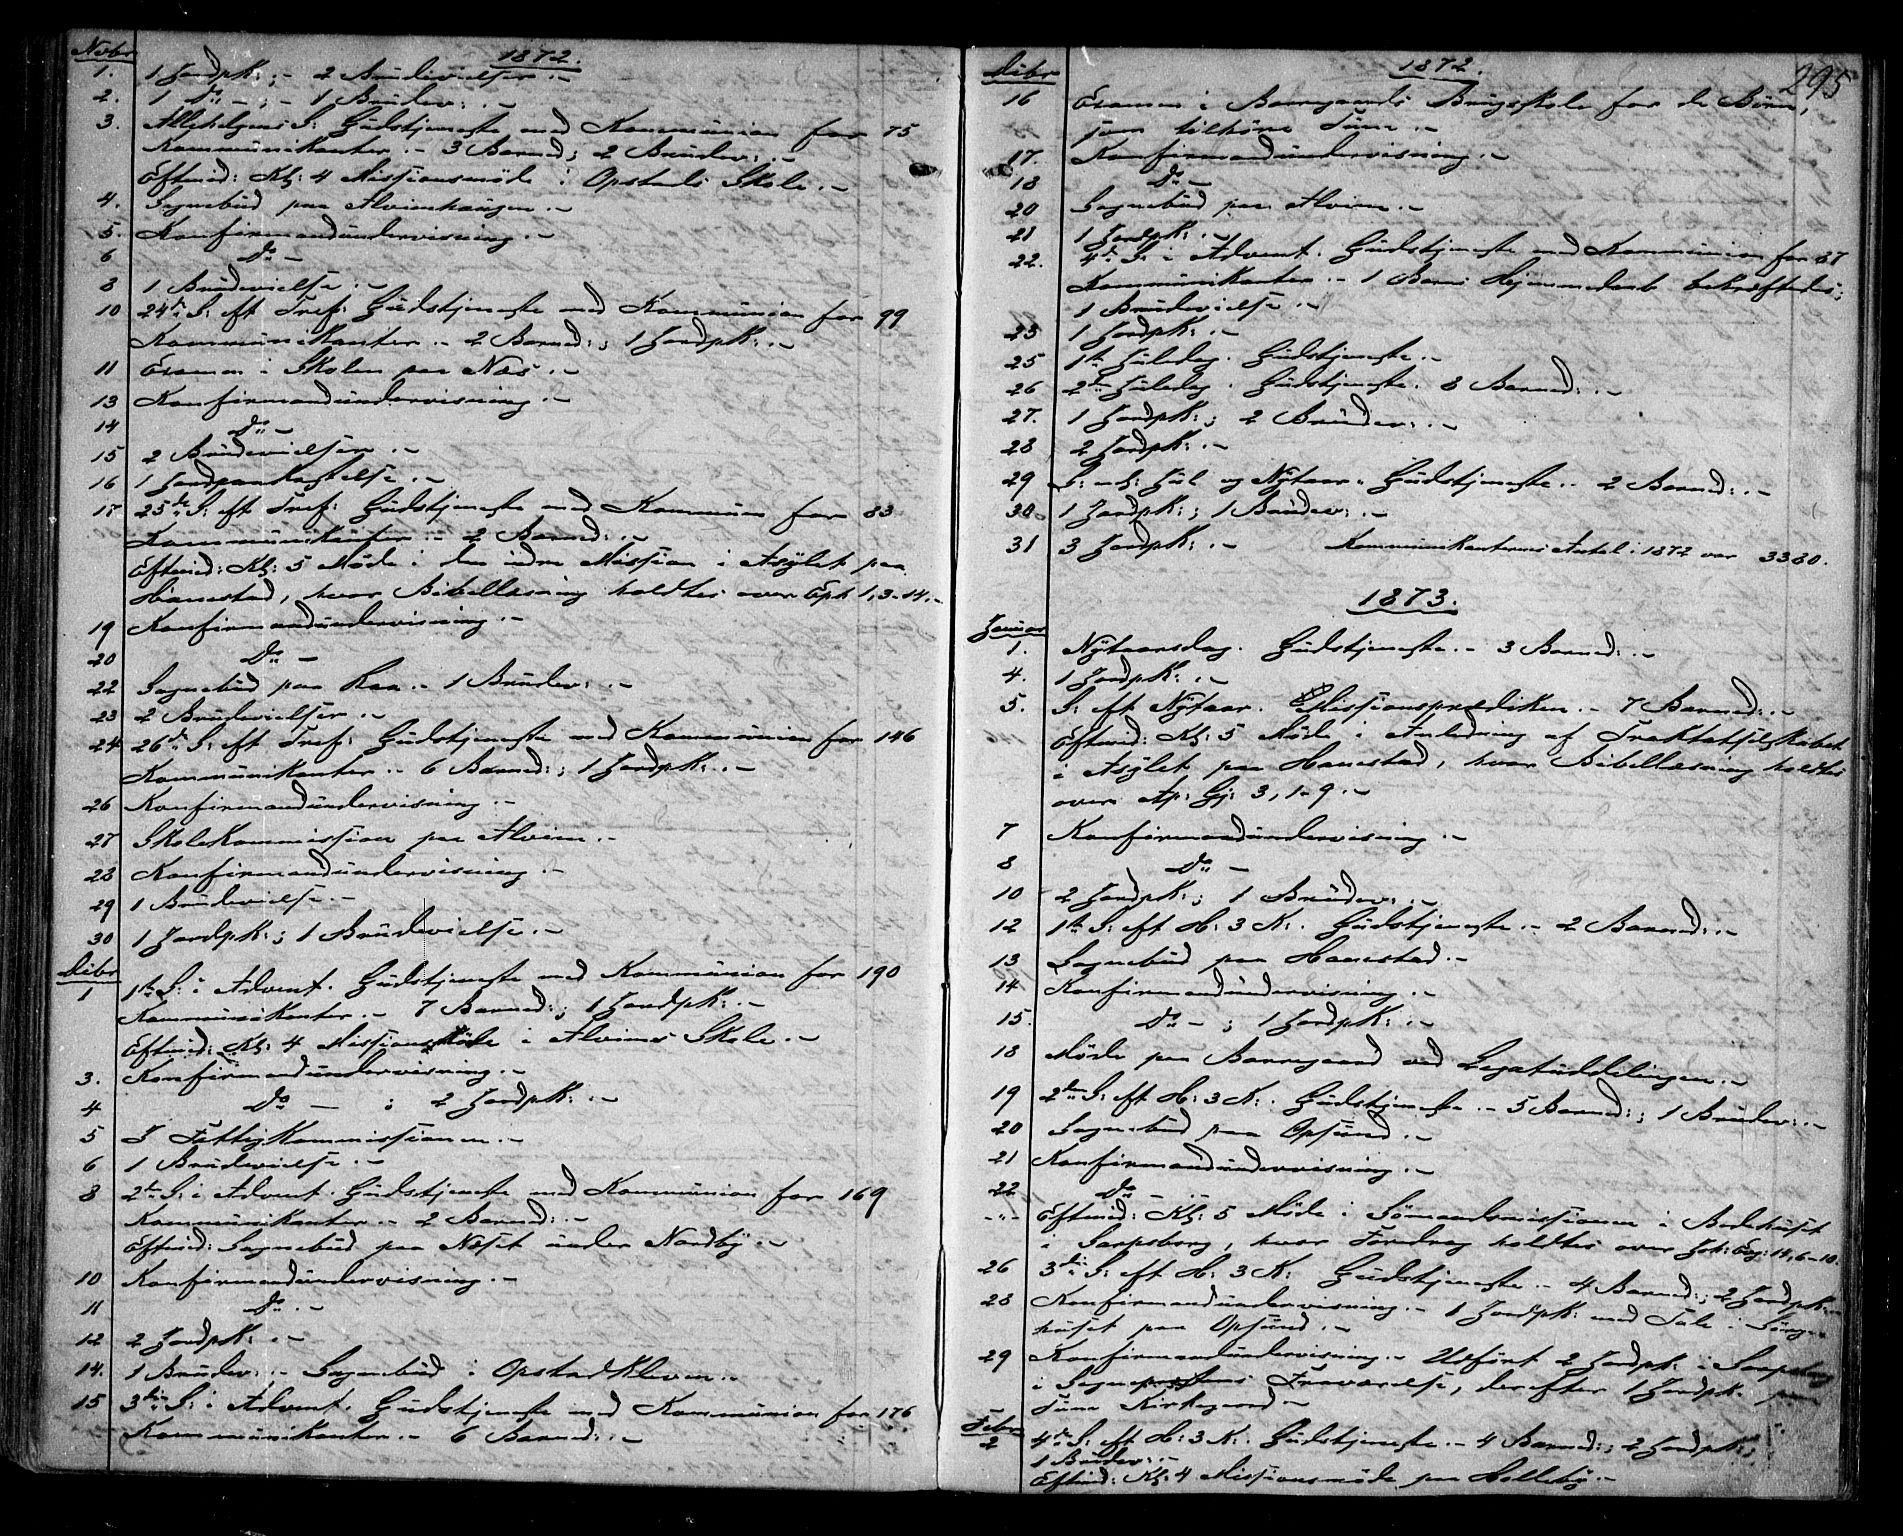 Novbr 1872.
1. 1 Jordpk: ,- 2 Brudevielser.-
2. 1 Do - ,- 1 Brudev: .-
3. Allehelgens S: Gudstjeneste med Kommunion for 75
Kommunikanter.- 3 Barned; 2 Brudev: .-
Eftmid: Kl: 4 Missionsmöde i Opstads Skole.-
4. Sognebud paa Alvimhaugen.-
5. Konfirmandundervisning.-
6 Do -
8 1 Brudevielse.-
10 24de S: eft Tref: Gudstjeneste med Kommunion for 99
Kommunikanter.- 2 Barned: ; 1 Jordpk: .-
11 Examen i Skolen paa Næs.-
13 Konfirmandundervisning.-
14 Do -
15 2 Brudevielser.-
16 1 Jordpaakastelse.-
17 25de S: eft Tref: Gudstjeneste med Kommunion for 83
Kommunikanter.- 2 Barned: .-
Eftmid: Kl: 5 Möde i den indre Mission i Asylet paa
Hanestad, hvor Bibellæsning holdtes over Eph 1,3-14.-
19 Konfirmandundervisning.-
20 Do -
22 Sognebud paa Raa.- 1 Brudev: .-
23 2 Brudevielser.-
24 26de S: eft Tref: Gudstjeneste med Kommunion for 146
Kommunikanter.- 6 Barned: ; 1 Jordpk: .-
26 Konfirmandundervisning.-
27 Skolekommission paa Alvim.-
28 Konfirmandundervisning.-
29 1 Brudevielse.-
30 1 Jordpk: ; 1 Brudevielse.-
Decbr
1 1ste S: i Advent. Gudstjeneste med Kommunion for 190
Kommunikanter.- 7 Barned: ; 1 Jordpk: .-
Eftmid: Kl: 4 Missionsmöde i Alvims Skole.-
3. Konfirmandundervisning.-
4 Do - ; 2 Jordpk: .-
5 I Fattigkommissionen.-
6 1 Brudevielse.-
8 2den S: i Advent. Gudstjeneste med Kommunion for 169
Kommunikanter.- 2 Barned: .-
Eftmid: Sognebud paa Næset under Nordby.-
10 Konfirmandundervisning.-
11 Do .-
12 2 Jordpk: .-
14. 1 Brudev: .- Sognebud i Opstadkleven.-
15 3die S: i Advent. Gudstjeneste med Kommunion for 176
Kommunikanter.- 6 Barned: .-
295
Decbr 1872.
16 Examen i Borregaards Brugsskole for de Börn,
som tilhöre Tune.-
17. Konfirmandundervisning.-
18 Do -
20 Sognebud paa Alvim.-
21 1 Jordpk: .-
22. 4de S: i Advent. Gudstjeneste med Kommunion for 67
Kommunikanter.- 1 Barns Hjemmedaab bekræftedes;
1 Brudevielse.-
23 1 Jordpk: .-
25 1ste Juledag. Gudstjeneste.-
26 2den Juledag. Gudstjeneste. 8 Barned: .-
27. 1 Jordpk: ; 2 Brudev: .-
28 2 Jordpk: .-
29 S: ml: Jul og Nytaar. Gudstjeneste.- 2 Barned: .-
30 1 Jordpk: ; 1 Brudev: .-
31 3 Jordpk: .- Kommunikanternes Antal i 1872 var 3380.
1873.
Januar
1. Nytaarsdag. Gudstjeneste.- 3 Barned: .-
4. 1 Jordpk: .-
5. S: eft Nytaar. Missionsprædiken.- 7 Barned: .-
Eftmid: Kl: 5 Möde i Anledning af Traktatselskabet
i Asylet paa Hanestad, hvor Bibellæsning holdtes
over Ap: Gj: 3, 1-9.-
7 Konfirmandundervisning.-
8 Do -
10 2 Jordpk: ; 1 Brudev: .-
12 1ste S: eft H: 3 K: Gudstjeneste.- 2 Barned: .-
13 Sognebud paa Hanestad.-
14 Konfirmandundervisning.-
15. Do - ; 1 Jordpk: .-
18 Möde paa Borregaard ved Legatuddelingen.-
19 2den S: eft H: 3 K: Gudstjeneste.- 5 Barned: ; 1 Brudev: .-
20 Sognebud paa Opsund.-
21 Konfirmandundervisning.-
22 Do -
-"- Eftmid: Kl: 5 Möde i Sömandsmissionen i Bedehuset
i Sarpsborg, hvor Foredrag holdtes over Joh: Evg: 14, 6-10.
26 3die S: eft H: 3 K: Gudstjeneste.- 4 Barned: ; 2 Jordpk: .-
28 Konfirmandundervisning.- 1 Jordpk: med Tale i Sörge-
huset paa Opsund.-
29 Konfirmandundervisning.- Udfört 2 Jordpk: i Sarpsborg
i Sognepræstens Fraværelse, derefter 1 Jordpk. paa
Tune Kirkegaard.-
Febr
2 4de S: eft H: 3 K: Gudstjeneste.- 4 Barned: ; 2 Jordpk: ;
1 Brudev: .-
Eftmid: Kl: 4 Missionsmöde paa Holleby.-